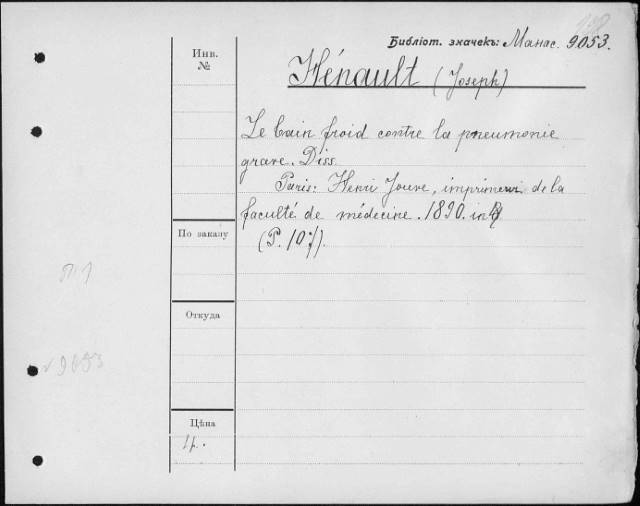 Библіот. значекъ: Манас. 9053.
Инв.
№
Hénault (Joseph)
Le bain froid contre la pneumonie
grave. Diss.
Paris: Henri Jouve, imprimeur de la
faculté de médecine. 1890. in 4
(P. 107).
По заказу
Откуда
9053
Цѣна
1р.